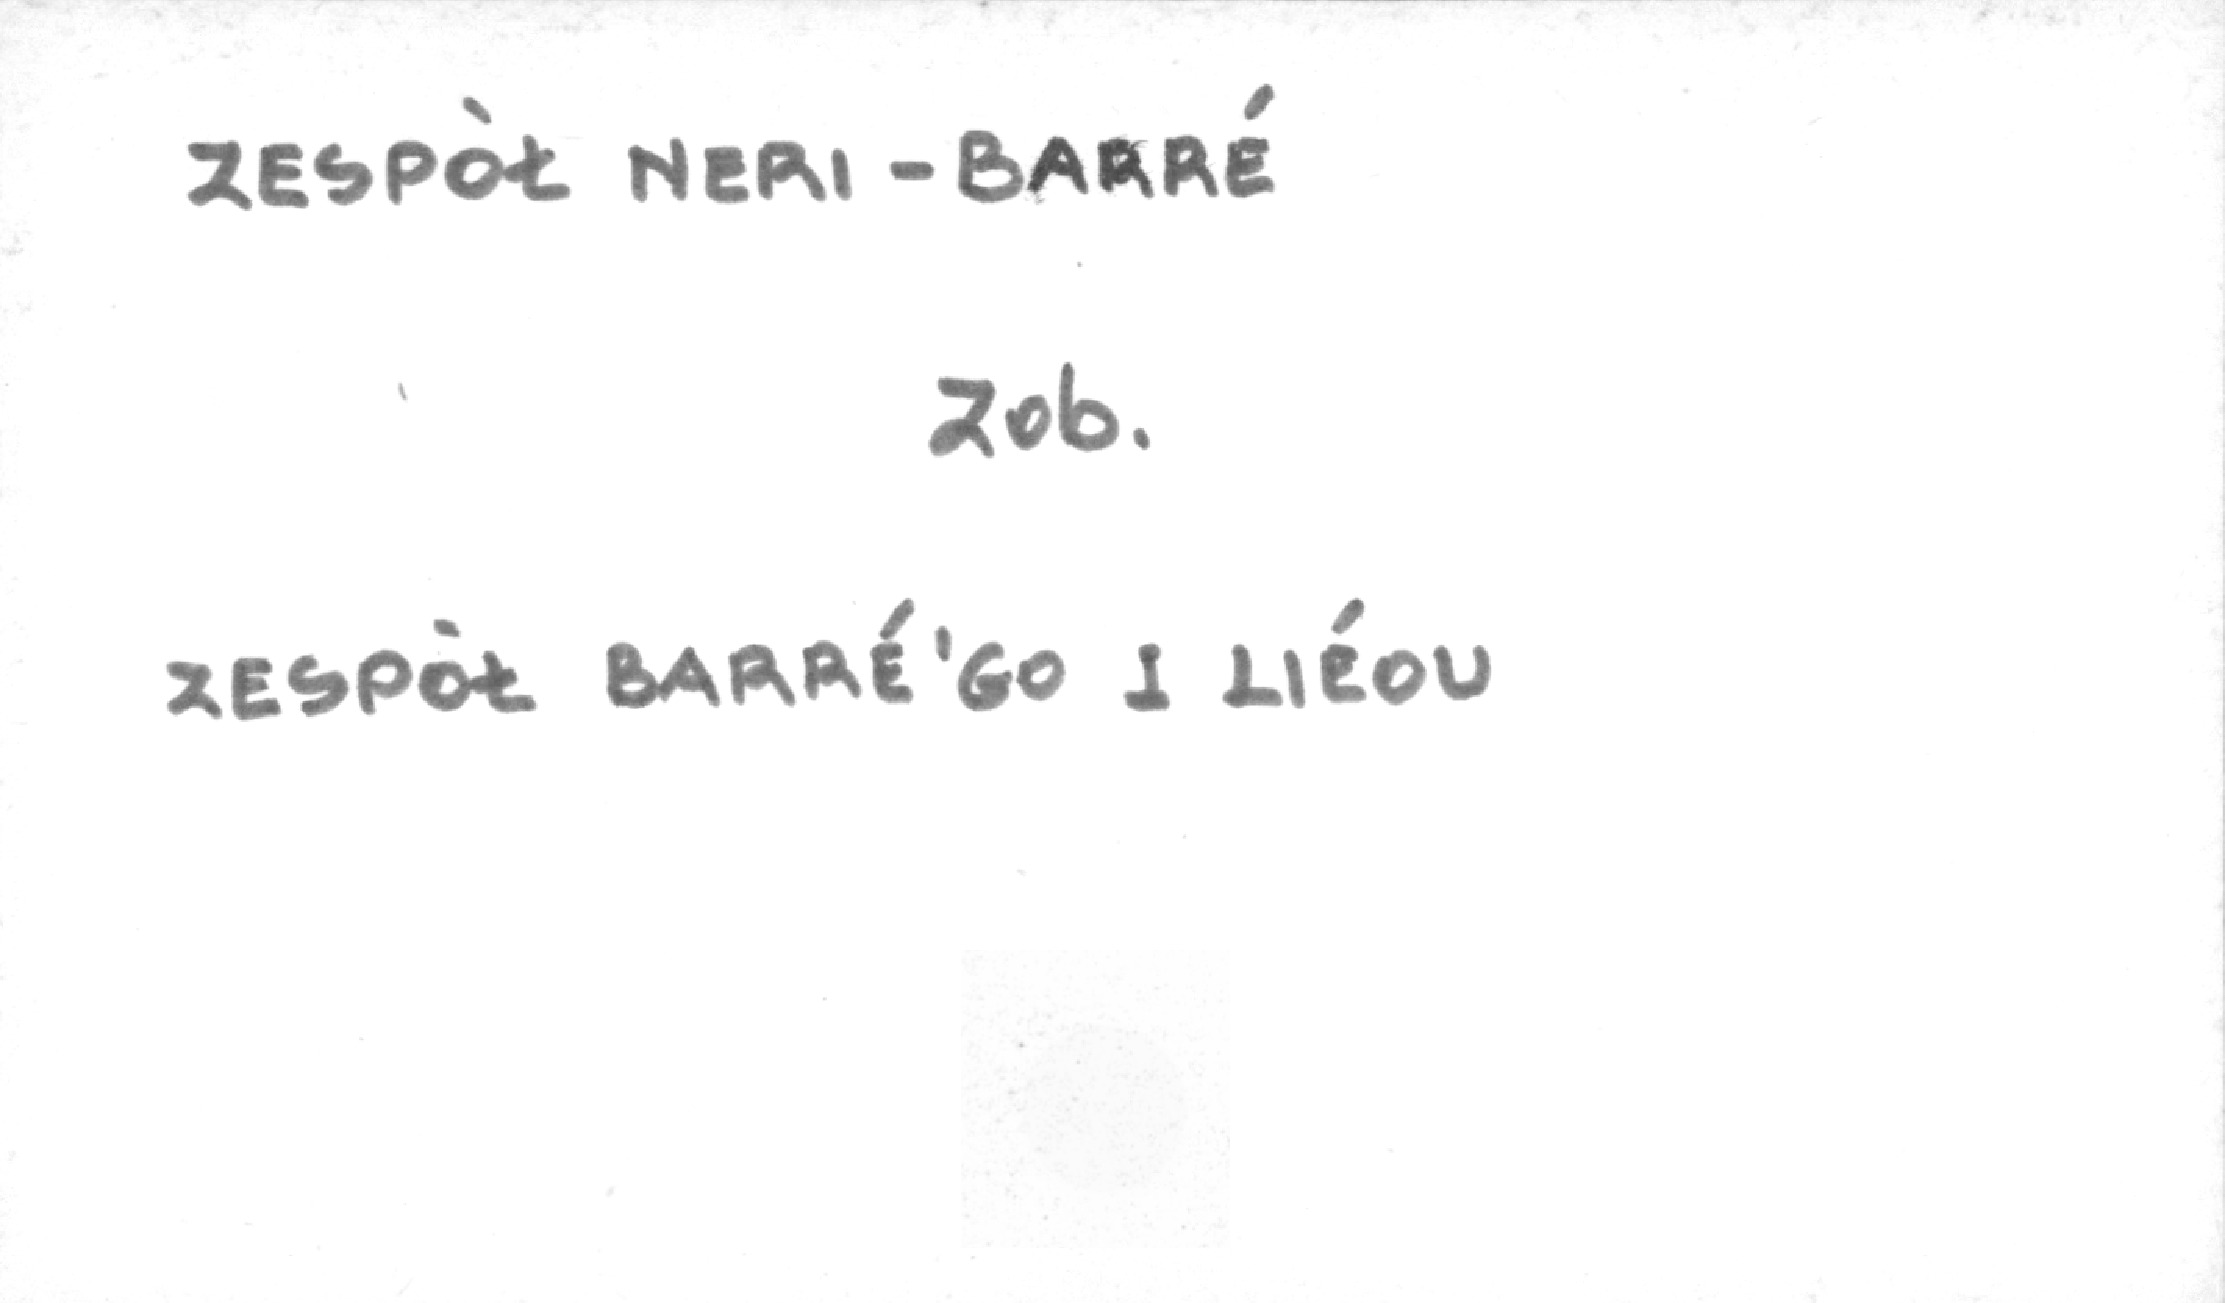 ZESPÒŁ NERI - BARRÉ
Zob.
ZESPÒŁ BARRÉ'GO I LIÉOU